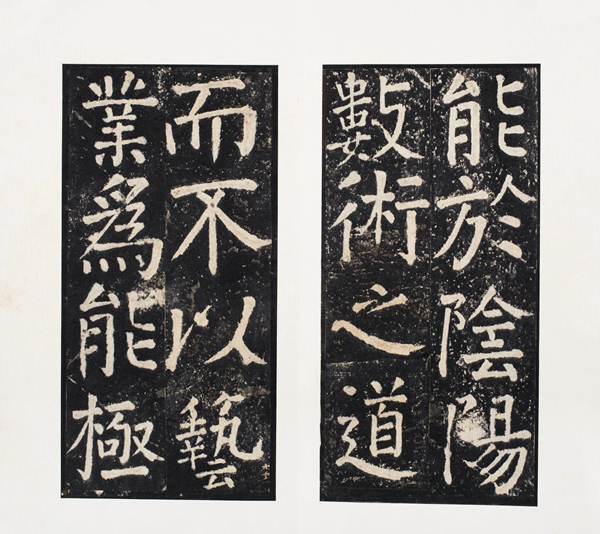 能於陰陽
數術之道
而不以藝
業爲能極